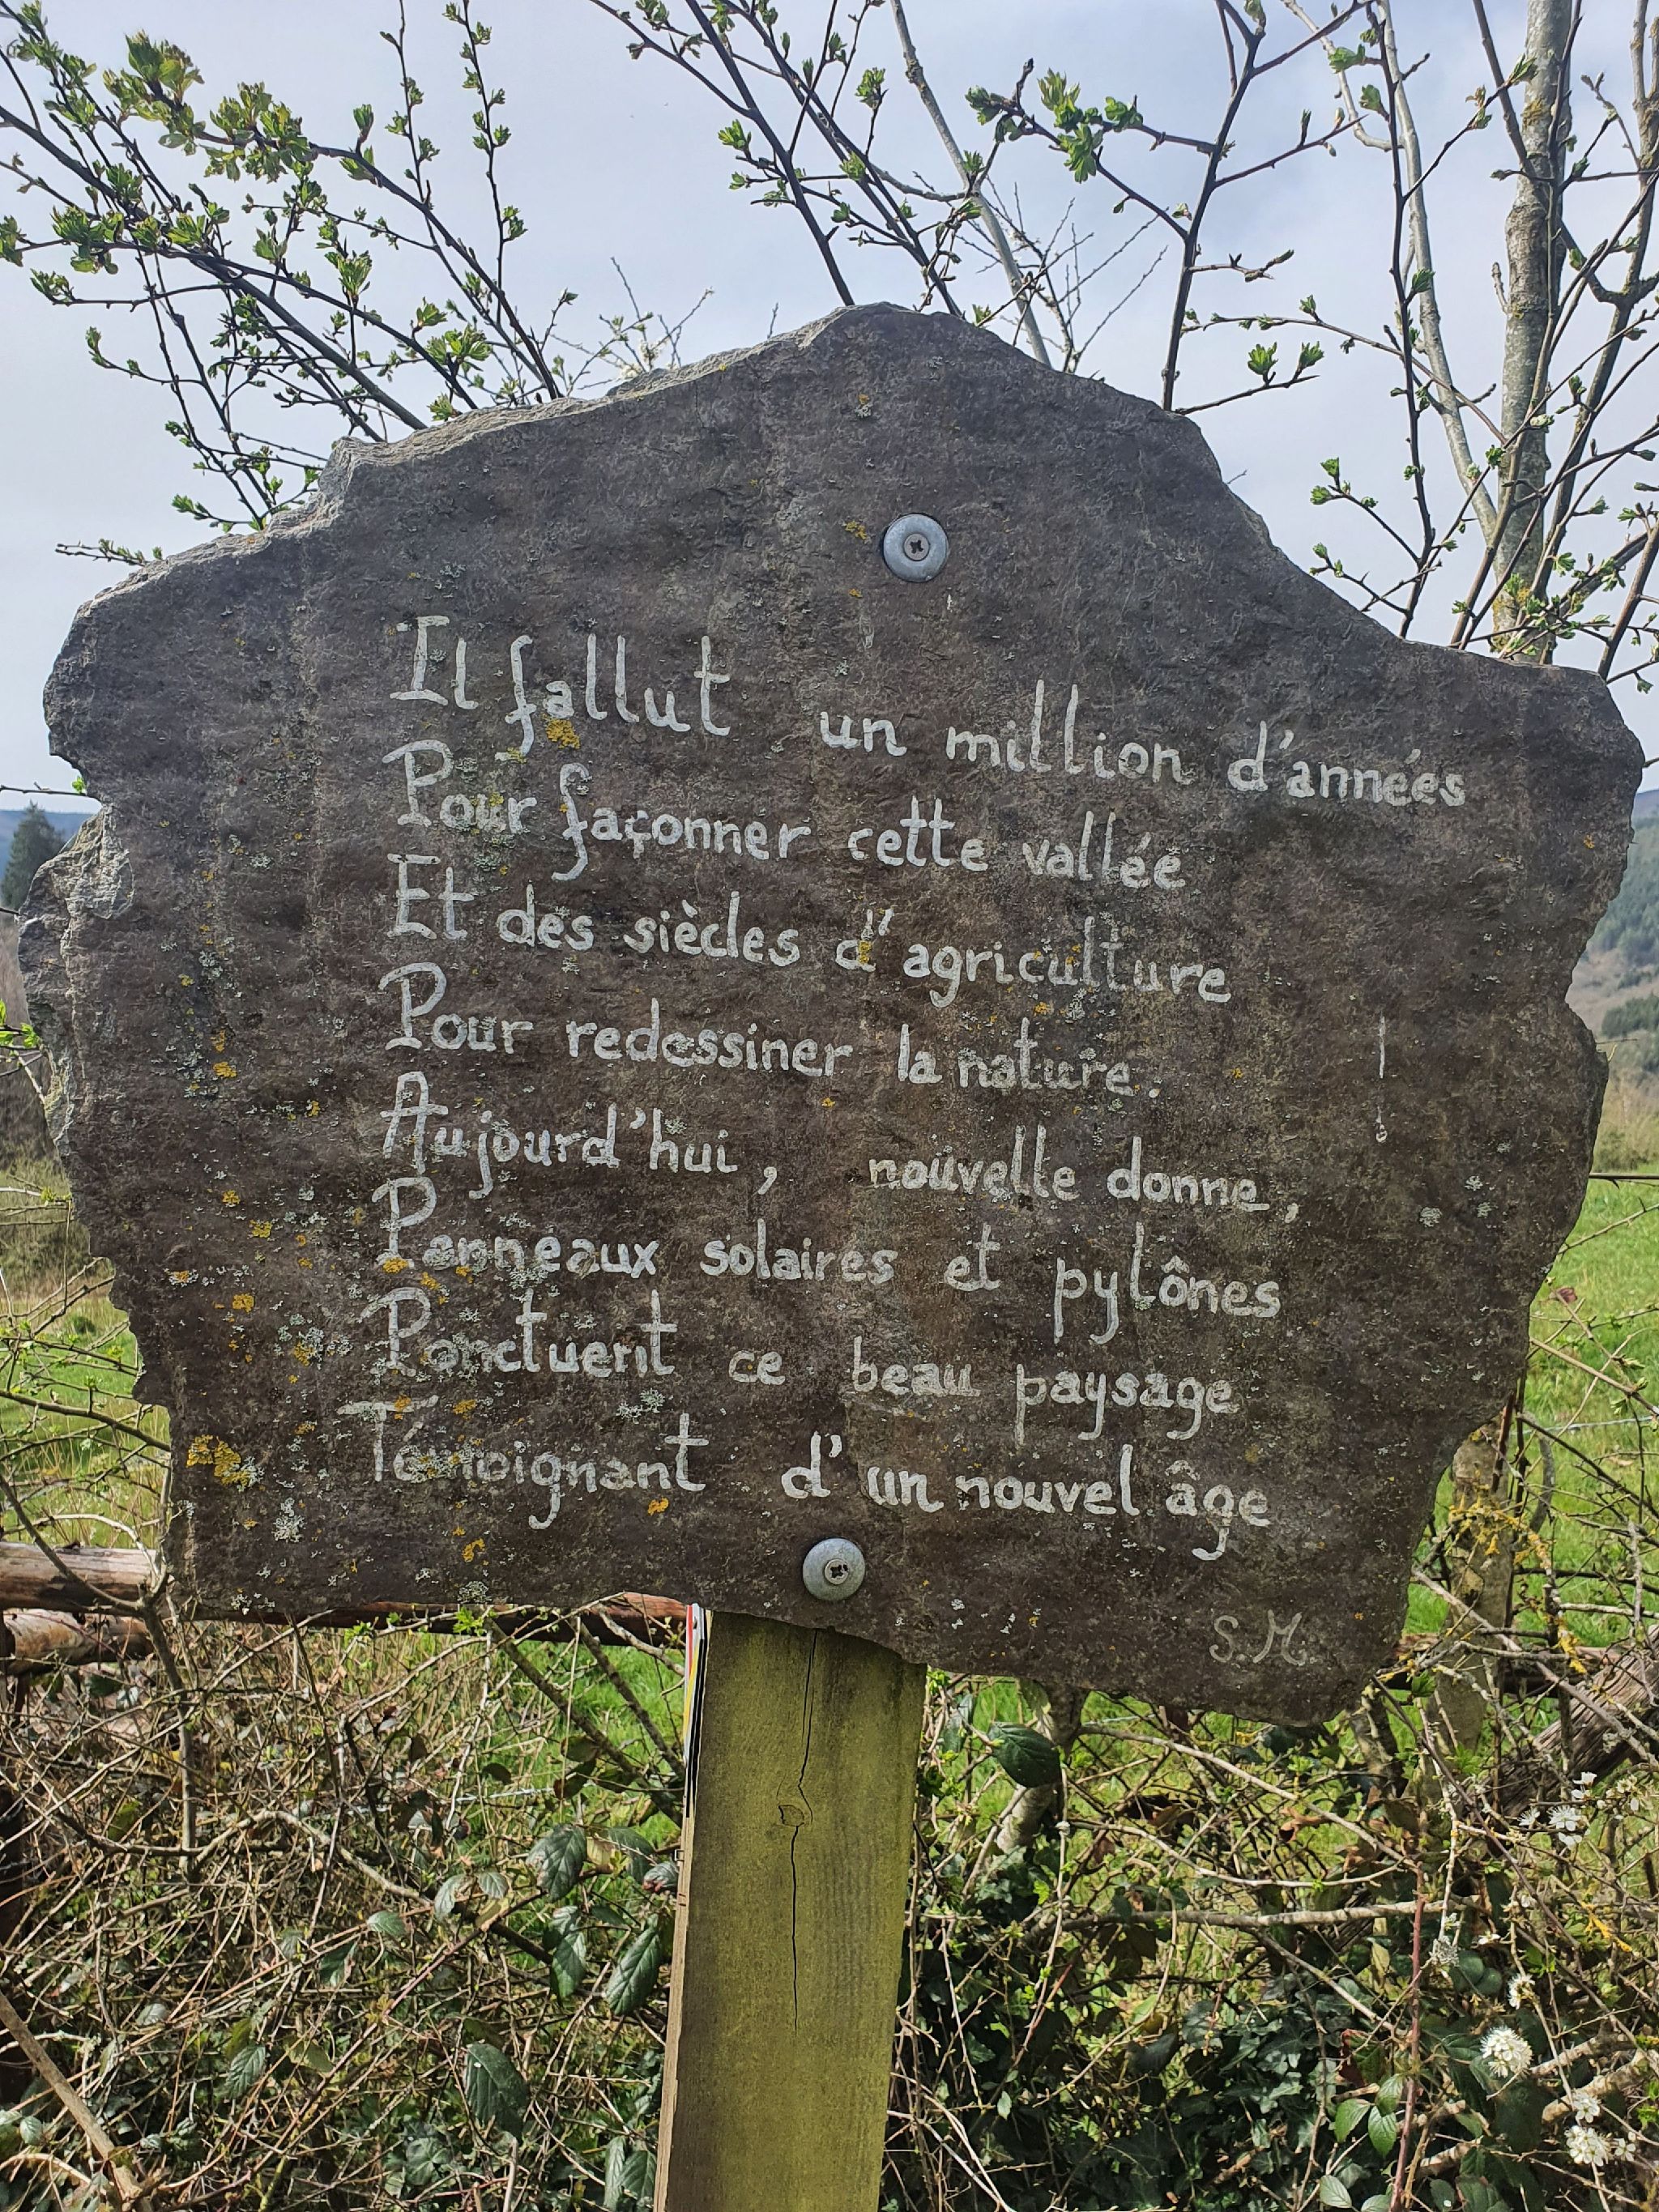 Il fallut un million d'années
Pour façonner cette vallée
Et des siècles d'agriculture
Pour redessiner la nature.
Aujourd'hui, nouvelle donne,
Panneaux solaires et pylônes
Ponctuent ce beau paysage
Témoignant d'un nouvel âge
S.M.